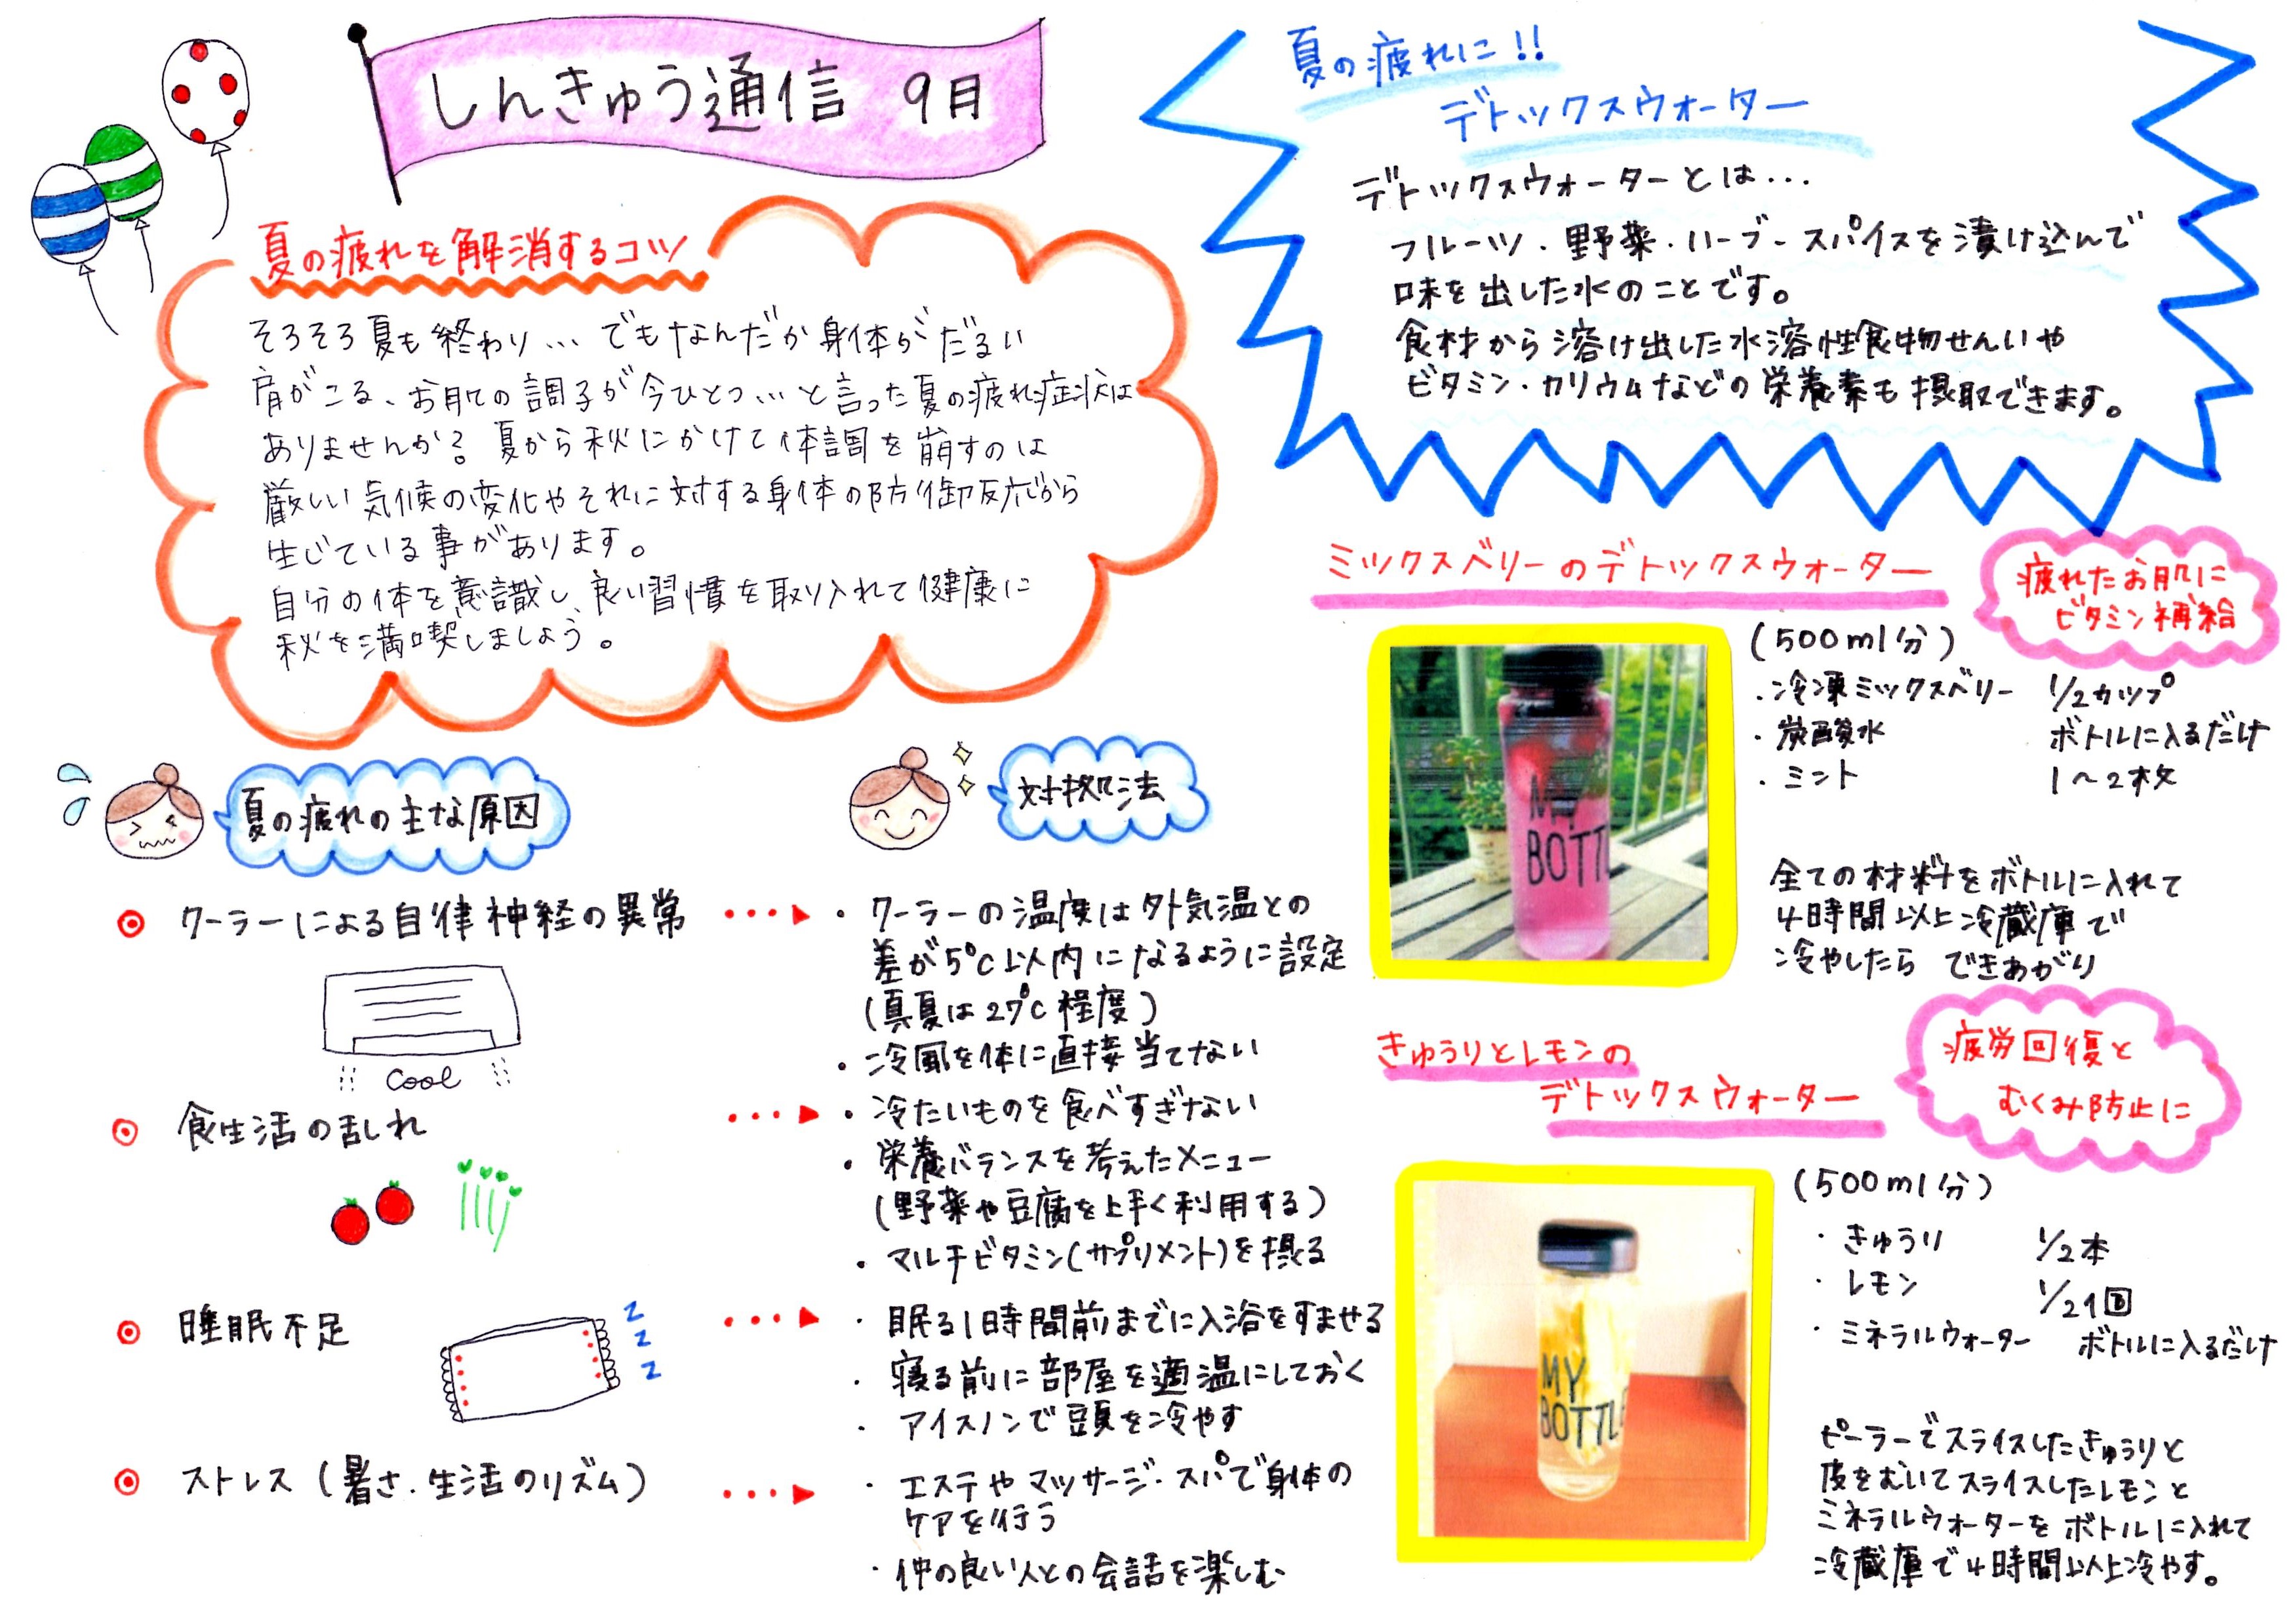 しんきゅう通信 9月
夏の疲れを解消するコツ
そろそろ夏も終わり…でもなんだか身体がだるい
肩がこる、お肌の調子が今ひとつ…と言った夏の疲れ症状は
ありませんか？夏から秋にかけて体調を崩すのは
厳しい気候の変化やそれに対する身体の防御反応から
生じている事があります。
自分の体を意識し、良い習慣を取り入れて健康に
秋を満喫しましょう。
夏の疲れの主な原因
対処法
クーラーによる自律神経の異常
・クーラーの温度は外気温との
差が5℃以内になるように設定
(真夏は27℃程度)
・冷風を体に直接当てない
cool
食生活の乱れ
・冷たいものを食べすぎない
・栄養バランスを考えたメニュー
(野菜や豆腐を上手く利用する)
・マルチビタミン(サプリメント)を摂る
睡眠不足
z
z
z
・眠る1時間前までに入浴をすませる
・寝る前に部屋を適温にしておく
・アイスノンで頭を冷やす
ストレス(暑さ・生活のリズム)
・エステやマッサージ・スパで身体の
ケアを行う
・仲の良い人との会話を楽しむ
夏の疲れに!!
デトックスウォーター
デトックスウォーターとは…
フルーツ・野菜・ハーブ・スパイスを漬け込んで
味を出した水のことです。
食材から溶け出した水溶性食物せんいや
ビタミン・カリウムなどの栄養素も摂取できます。
ミックスベリーのデトックスウォーター
疲れたお肌に
ビタミン補給
MY
BOTTL
(500ml分)
・冷凍ミックスベリー 1/2カップ
・炭酸水 ボトルに入るだけ
・ミント 1〜2枚
全ての材料をボトルに入れて
4時間以上冷蔵庫で
冷やしたら できあがり
きゅうりとレモンの
デトックスウォーター
疲労回復と
むくみ防止に
MY
BOTTLE
(500ml分)
・きゅうり 1/2本
・レモン 1/2個
・ミネラルウォーター ボトルに入るだけ
ピーラーでスライスしたきゅうりと
皮をむいてスライスしたレモンと
ミネラルウォーターをボトルに入れて
冷蔵庫で4時間以上冷やす。